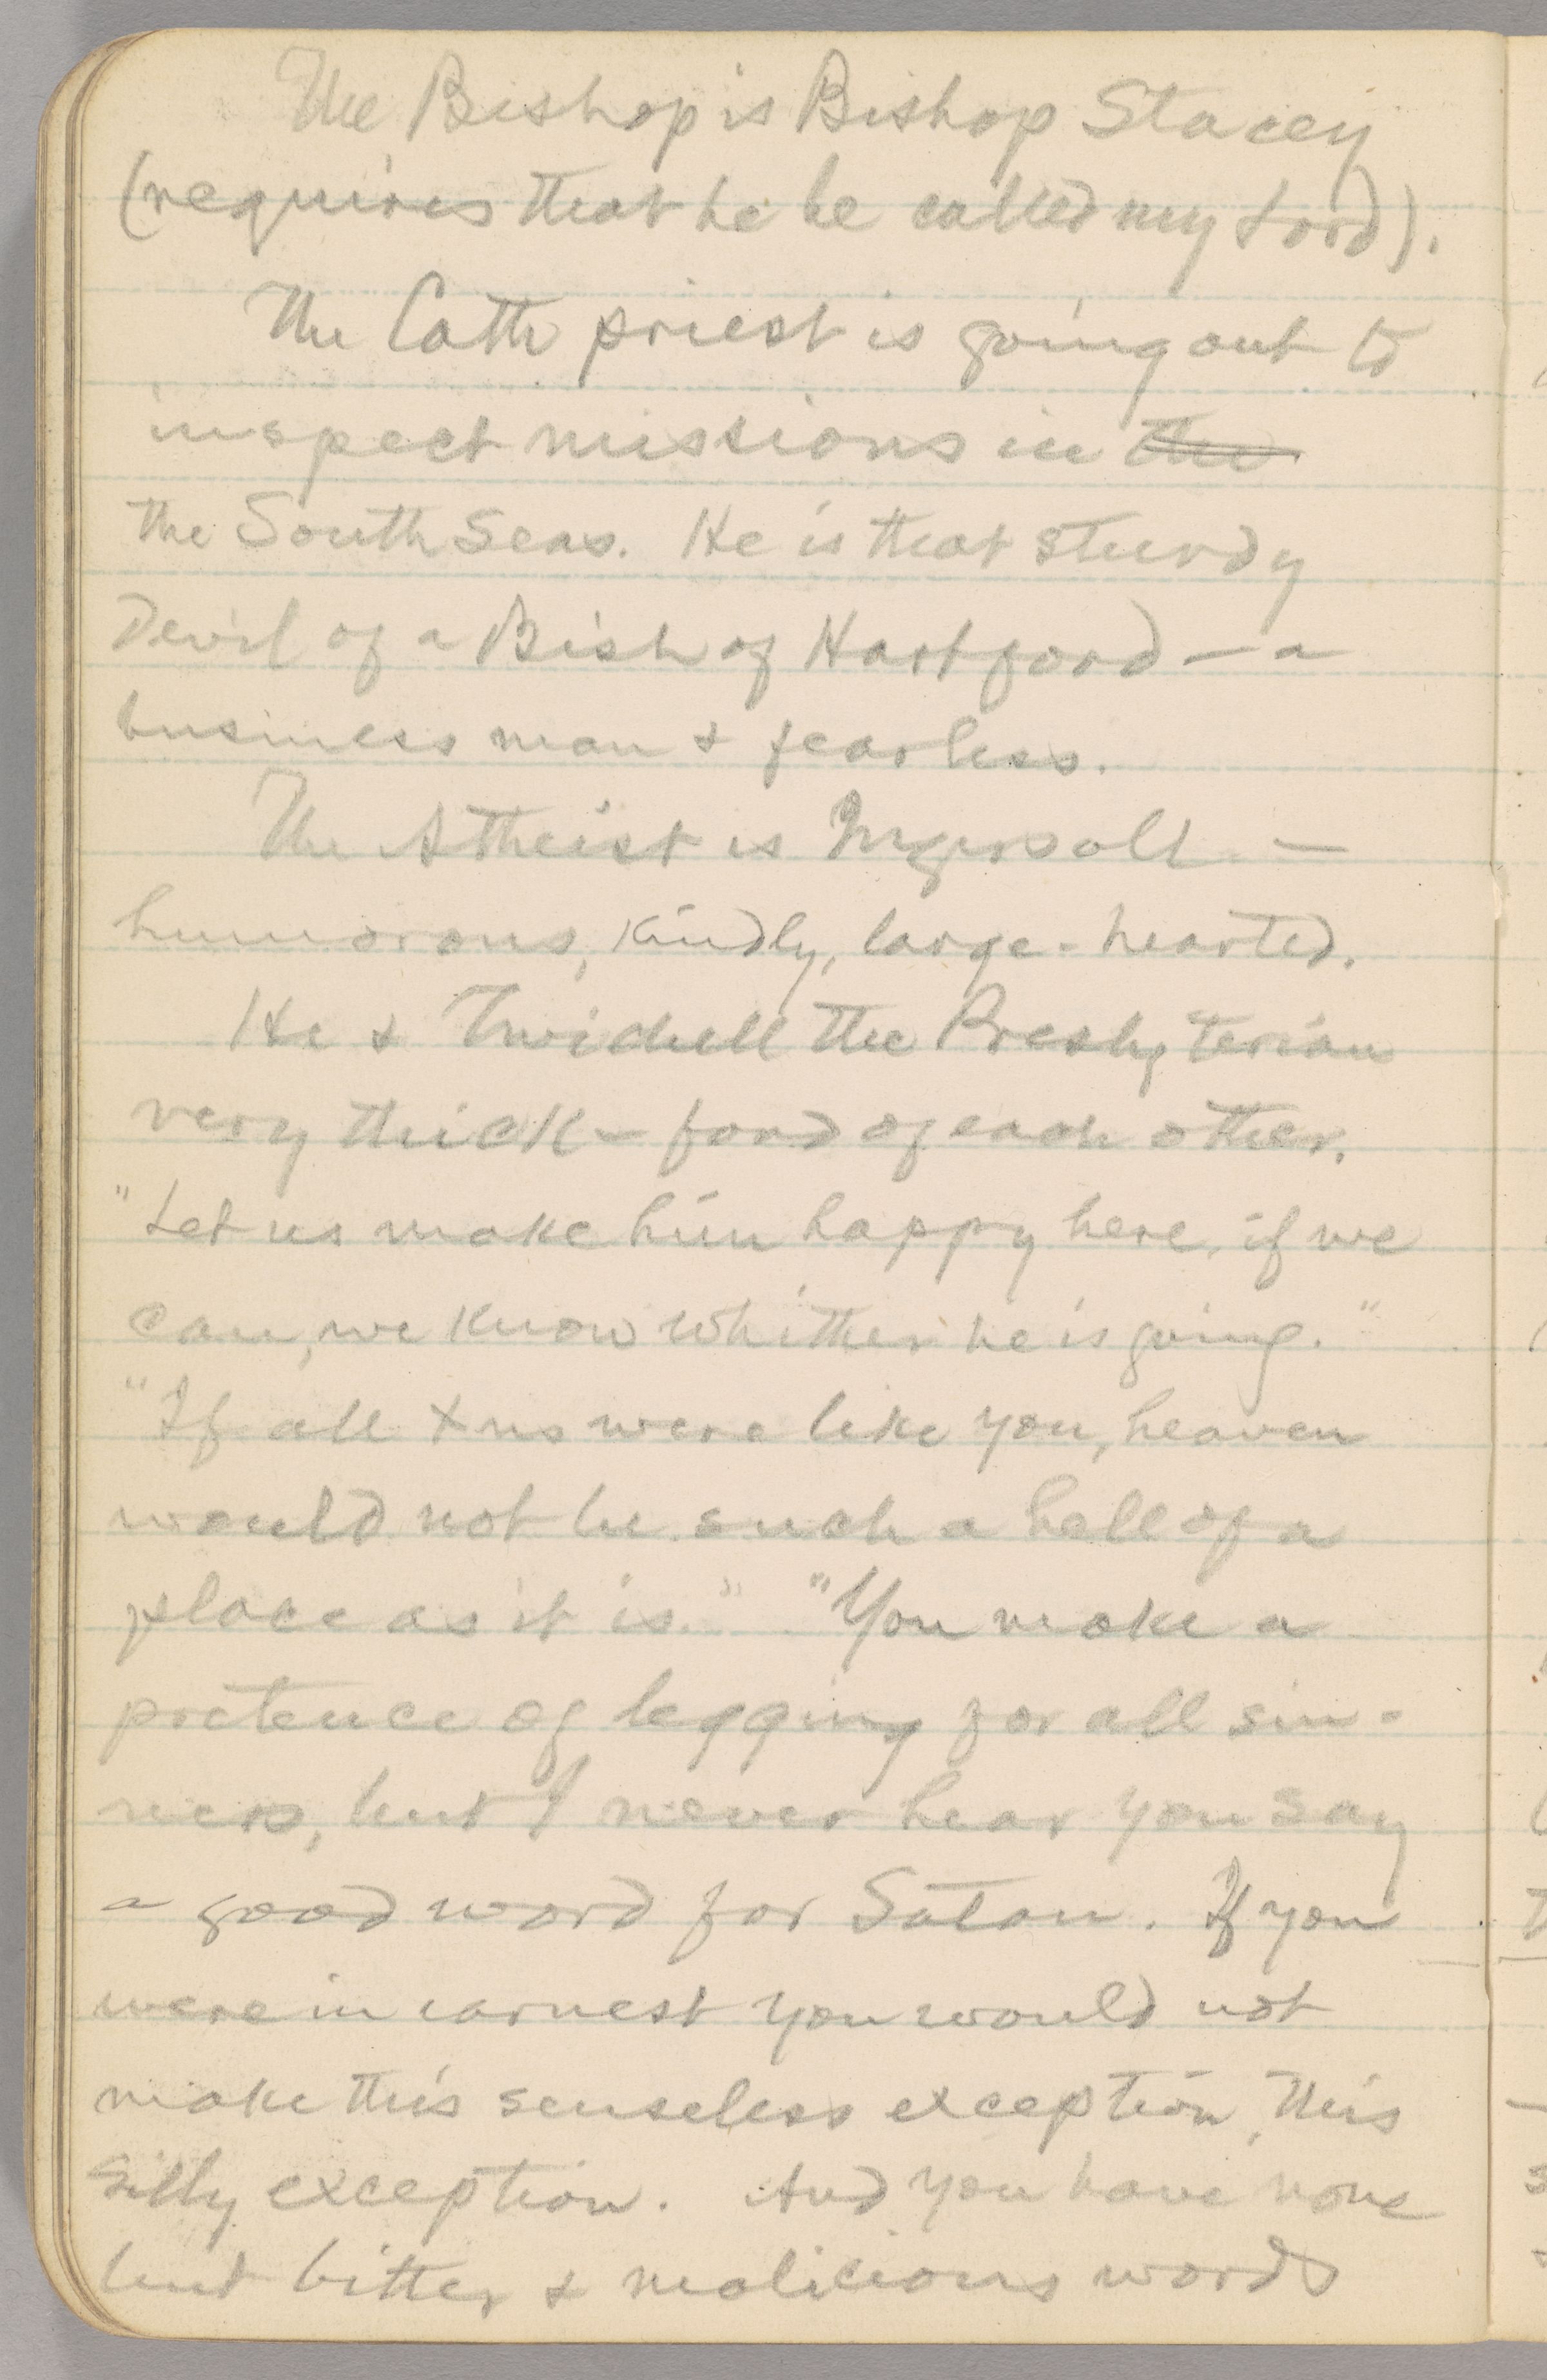 The Bishop is Bishop Stacey
(requires that he be called my Lord).
The Cath priest is going out to
inspect missions in the
the South Seas. He is that sturdy
devil of a Bish of Hartford — a
business man & fearless.
The Atheist is Ingersoll —
humorous, kindly, large-hearted.
He & Twichell the Presbyterian
very thick — fond of each other.
"Let us make him happy here, if we
can, we know whither he is going."
"If all Xns were like you, heaven
would not be such a hell of a
place as it is." "You make a
pretence of begging for all sin-
ners, but I never hear you say
a good word for Satan. If you
were in earnest you would not
make this senseless exception, this
silly exception. And you have none
but bitter & malicious words